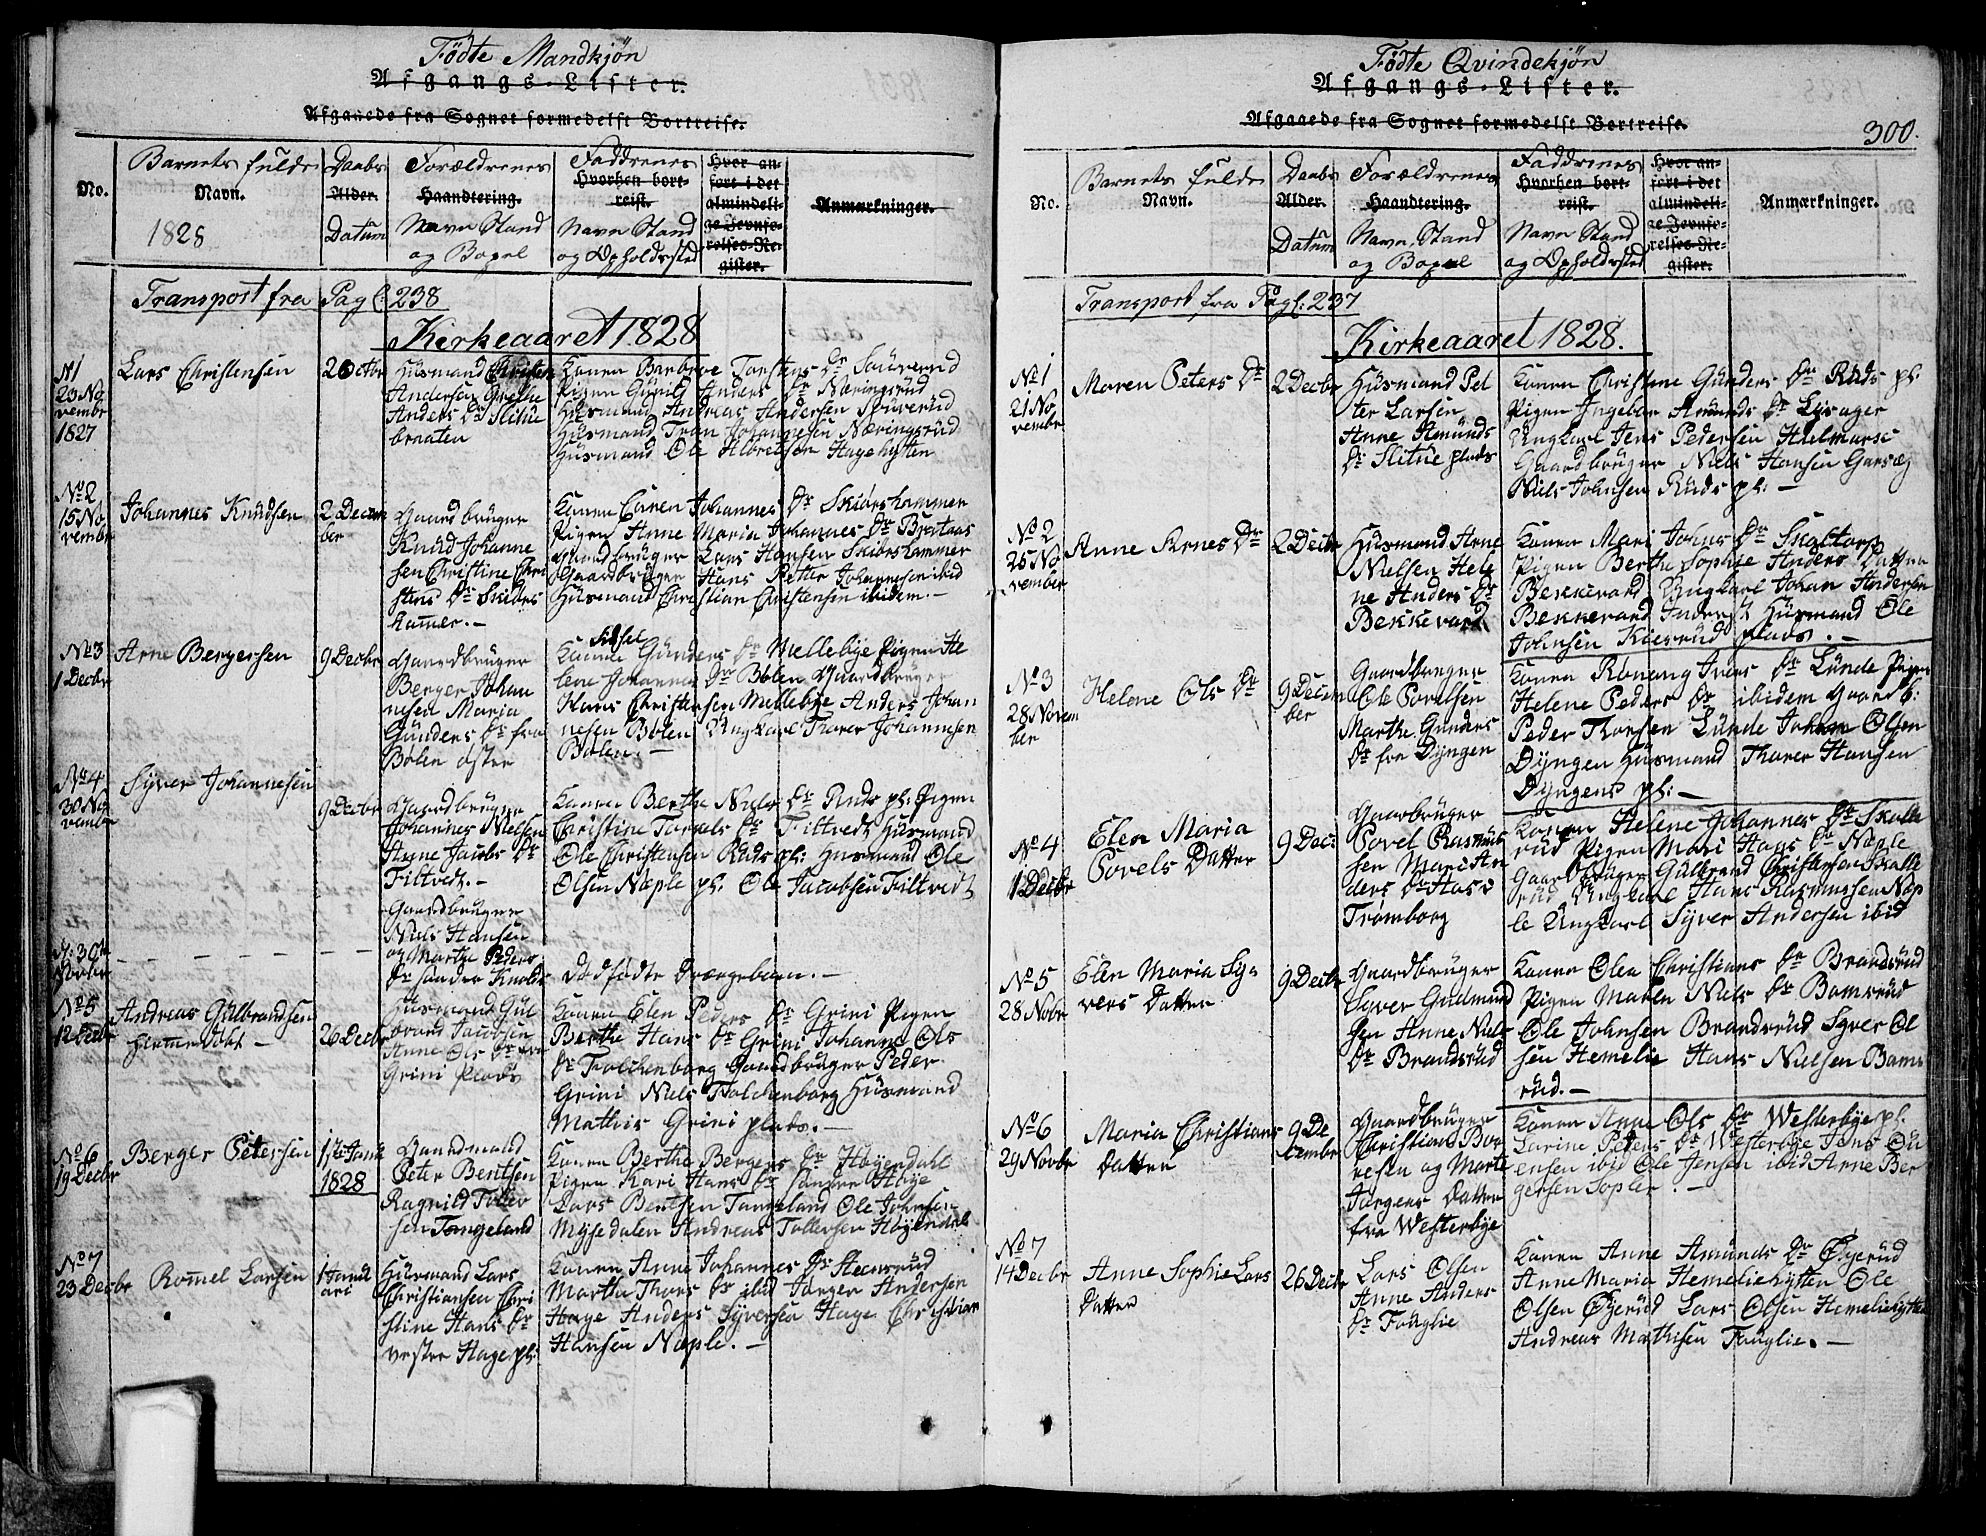 Fødte Mandkjøn
Afgangs-Lister.
Afgaaede fra Sognet formedelst Bortreise.
No.
Barnets fulde
Navn.
1828
Daabs
Alder.
Datum
Forældrenes
Haandtering.
Navn Stand
og Bopel
Faddrenes
Hvorhen bort-
reist.
Navn Stand
og Opholdssted
Hvor an-
ført i det
almindeli-
ge Jevnfø-
relses-Re-
gister.
Anmærkninger.
Transport fra Pag: 238
Kirkeaaret 1828
N1
23 No
vembr
1827
Lars Christensen
2 Octbr
Husmand Christen
Andersen Grethe
Anders Dr Slitue
braaten
Konen Barbroe Torstens Dr Sauverud
Pigen Gunild Anders Dr Næringsrud
Husmand Andreas Andersen Sauverud
Husmand Tron Johannesen Næringsrud
Husmand Ole Albretsen Hagehytten
No 2
15 No
vembr
Johannes Knudsen
2 Decem
ber
Gaardbruger
Knud Johanne
sen Christine Chri
stens Dr Skiøns
hammer.-
Konen Karen Johannes Dr Skiønshammer
Pigen Anne Maria Johannes Dr Bjøtaas
Gaardbruger Lars Hansen Skiønshammer
Gaardbruger Hans Petter Johannesen ibid
Husmand Christian Christensen ibidem.-
No 3
1 Decbr
Arne Bergersen
9 Decbr
Gaardbruger
Berger Johan
nesen Maria
Gunders Dr fra
Bølen øster
Konen Sidsel Gunders Dr Mellebye Pigen He
lene Johannes Dr Bølen Gaardbruger
Hans Christensen Mellebye Anders Johan
nesen Bølen Ungkarl Thorer Johannesen
Bølen.-
No 4
30 No
vembr
Syver Johannesen
9 Decbr
Gaardbruger
Johannes Nielsen
Anne Jacobs Dr
Tiltvedt.-
Konen Berthe Niels Dr Ruds pl: Pigen
Christine Torkels Dr Tiltvedt Husmand
Ole Christensen Ruds pl: Husmand Ole
Olsen Næple pl. Ole Jacobsen Tiltvedt
N: 30te
Novbr
Gaardbruger
Niels Hansen
og Marthe Peders
Dr søndre Knolds
Dødfødte Drængebarn.-
No 5
12 Decbr
Andreas Gulbrandsen
hjemmedøbt -
26 Decbr
Husmand Gul
brand Jacobsen
Anne Ols Dr fra
Grini Plads
Konen Elen Peders Dr Grini Pigen
Berthe Hans Dr Grini Johanne Ols
Dr Folchenborg Gaardbruger Peder
Grini Niels Folchenborg Husmand
Mathis Grini plads.-
No 6
19 Decbr
Berger Petersen
1te Janu
1828
Gaardmand
Peter Bentsen
Ragnild Toller
sen Tangeland
Konen Berthe Bergers Dr Høyendahl
Pigen Kari Hans Dr søndre Hage
Lars Bentsen Tangeland Ole Johnsen
Mysedalen Andreas Tollersen Høyendal
No 7
23 Decbr
Rommel Larsen
1 Janu
ari
Husmand Lars
Christiansen Chri
stine Hans Dr
vestre Hage pl:
Konen Anne Johannes Dr Steensrud
Marthe Thors Dr ibid Jørger Andersen
Hage Anders Syversen Hage Christian
Hansen Næple.-
Fødte Qvindekjøn
Afgangs-Lister.
Afgaaede fra Sognet formedelst Bortreise.
300.
No.
Barnets fulde
Navn.
Daabs
Alder.
Datum
Forældrenes
Haandtering.
Navn, Stand
og Bopel
Faddrenes
Hvorhen bort-
reist.
Navn Stand
og Opholdssted
Hvor an-
ført i det
almindeli-
ge Jevnfø-
relses-Re-
gister.
Anmærkninger.
Transport fra Pag: 237
Kirkeaaret 1828.
No 1
21 No
vembr
Maren Peters Dr
2 Decbr
Husmand Pet
ter Larsen
Anne Amunds
Dr Slitue plads
Konen Christine Gunders Dr Ruds pl:
Pigen Ingebor Amunds Dr Lysager
Ungkarl Jens Pedersen Hielmark
Gaardbruger Niels Hansen Garsæg
Niels Johnsen Ruds pl: -
No 2
25 No
vember
Anne Arnes Dr
2 Decbr
Husmand Arne
Nielsen Hele
ne Anders Dr
Bekkevard
Konen Mari Johns Dr Skoltorp
Pigen Berthe Sophie Anders Datter
Bekkevard Ungkarl Johan Andersen
Bekkevard Inderst Husmand Ole
Johnsen Kaesrud plads.-
No 3
28 Novem
ber
Helene Ols Dr
9 Decem
ber
Gaardbruger
Ole Povelsen
Marthe Gunders
Dr fra Dyngen
Konen Rønnaug Ivers Dr Lunde Pigen
Helene Peders Dr ibidem Gaardb:
Peder Thorsen Lunde Johan Olsen
Dyngen Husmand Thorer Hansen
Dyngens pl: -
No 4
1 Decbr
Elen Maria
Povels Datter
9 Dec:
Gaarbruger
Povel Rasmus
sen Mari An
ders Dr Hase
Trømborg
Konen Helene Johannes Dr Skolle
rud Pigen Mari Hans Dr Næple
Gaardbruger Gulbrand Christensen Skolle
rud Ungkarl Hans Rasmussen Næp
le Ungkarl Syver Andersen ibid
No 5
28 Novbr
Elen Maria Sy-
vers Datter
9 Decbr
Gaardbruger
Syver Gudmund
sen Anne Niels
Dr Brandsrud
Konen Olea Christians Dr Brandsrud
Pigen Maren Niels Dr Bamsrud
Ole Johnsen Brandsrud Syver Ol
sen Hemelie Hans Nielsen Bams
rud.-
No 6
29 Novbr
Maria Christians
Datter
9 De
cembr
Gaardbruger
Christian Bor
resen og Marte
Jørgens Datter
fra Westerbye
Konen Anne Ols Dr Westerbye pl:
Larine Peters Dr Westerbye Jens Ou
ensen ibid Ole Jensen ibid Arne Ber
gersen Sopler.-
No 7
14 Decbr
Anne Sophie Lars
Datter
26 Decbr
Lars Olsen
Anne Anders
Dr Fouglie
Konen Anne Amunds Dr Øyerud
Anne Maria Hemeliehytten Ole
Olsen Øyerud Lars Olsen Hemeliehytten
Andreas Mathisen Fouglie.-